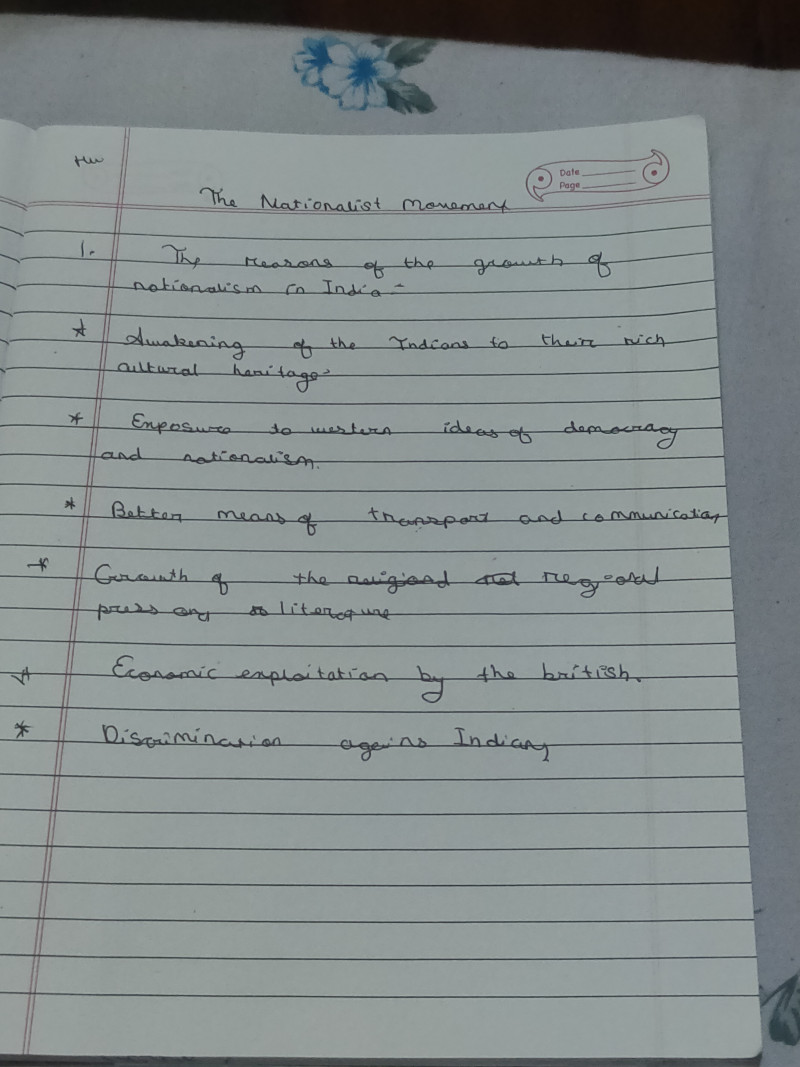 HW
Date
Page
The Nationalist Movement
1. The reasons of the growth of
nationalism in India -
* Awakening of the Indians to their rich
cultural heritage.
* Exposure to western ideas of democracy
and nationalism.
* Better means of transport and communication
* Growth of the regional
press and literature
* Economic exploitation by the british.
* Discrimination agains Indians